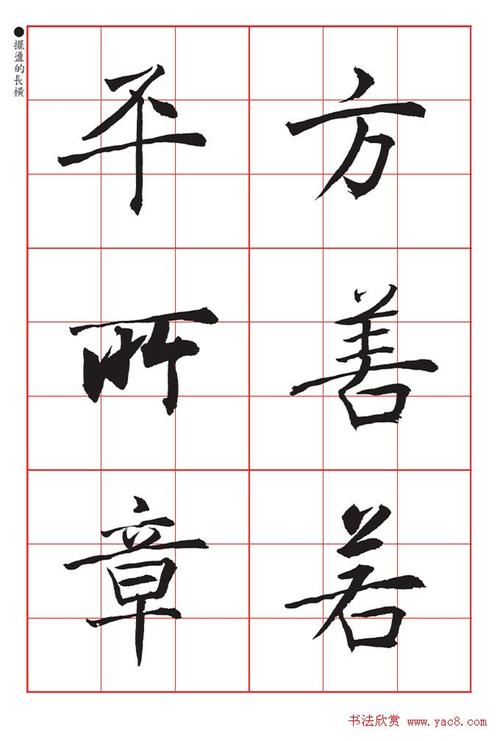 ●擺盪的長橫
方善若
平所章
书法欣赏 www.yac8.com